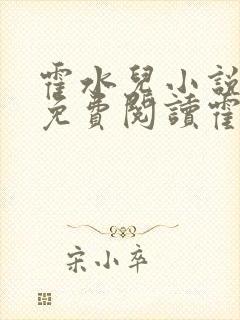 霍水兒小說
免費閱讀霍
宋小卒